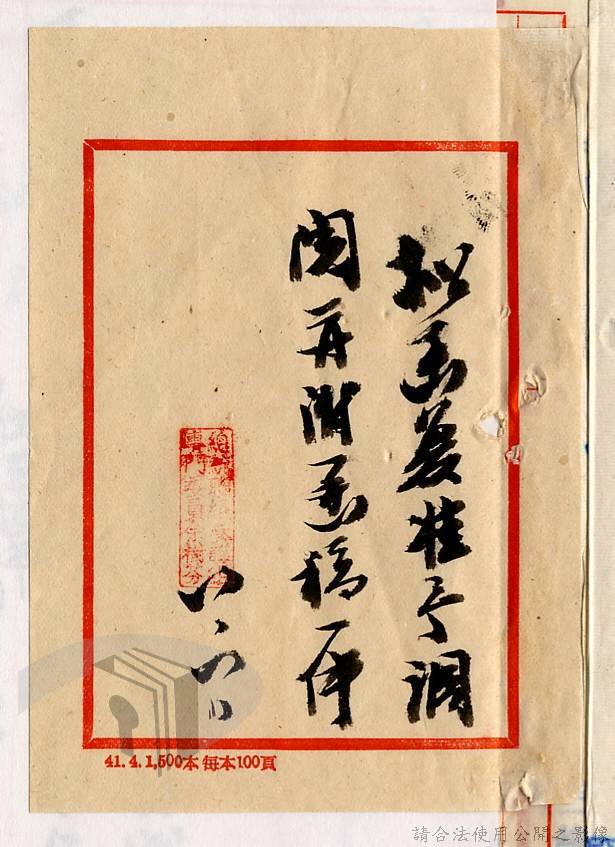 拟函复准予調
閱并附函稿一件
41. 4. 1,500本 每本100頁
請合法使用公開之影像